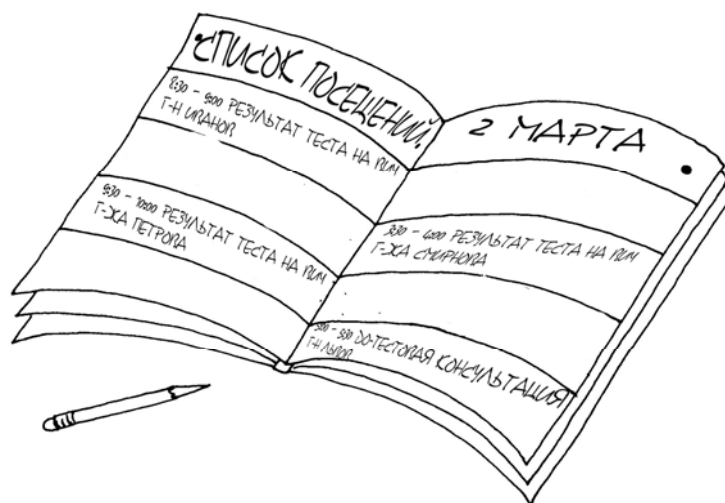 СПИСОК ПОСЕЩЕНИЙ.
8:30 – 9:00 РЕЗУЛЬТАТ ТЕСТА НА ВИЧ
Г-Н ИВАНОВ
9:30 – 10:00 РЕЗУЛЬТАТ ТЕСТА НА ВИЧ
Г-ЖА ПЕТРОВА
2 МАРТА
3:30 – 4:00 РЕЗУЛЬТАТ ТЕСТА НА ВИЧ
Г-ЖА СМИРНОВА
5:00 – 5:30 ДО-ТЕСТОВАЯ КОНСУЛЬТАЦИЯ
Г-Н ЛЬВОВ